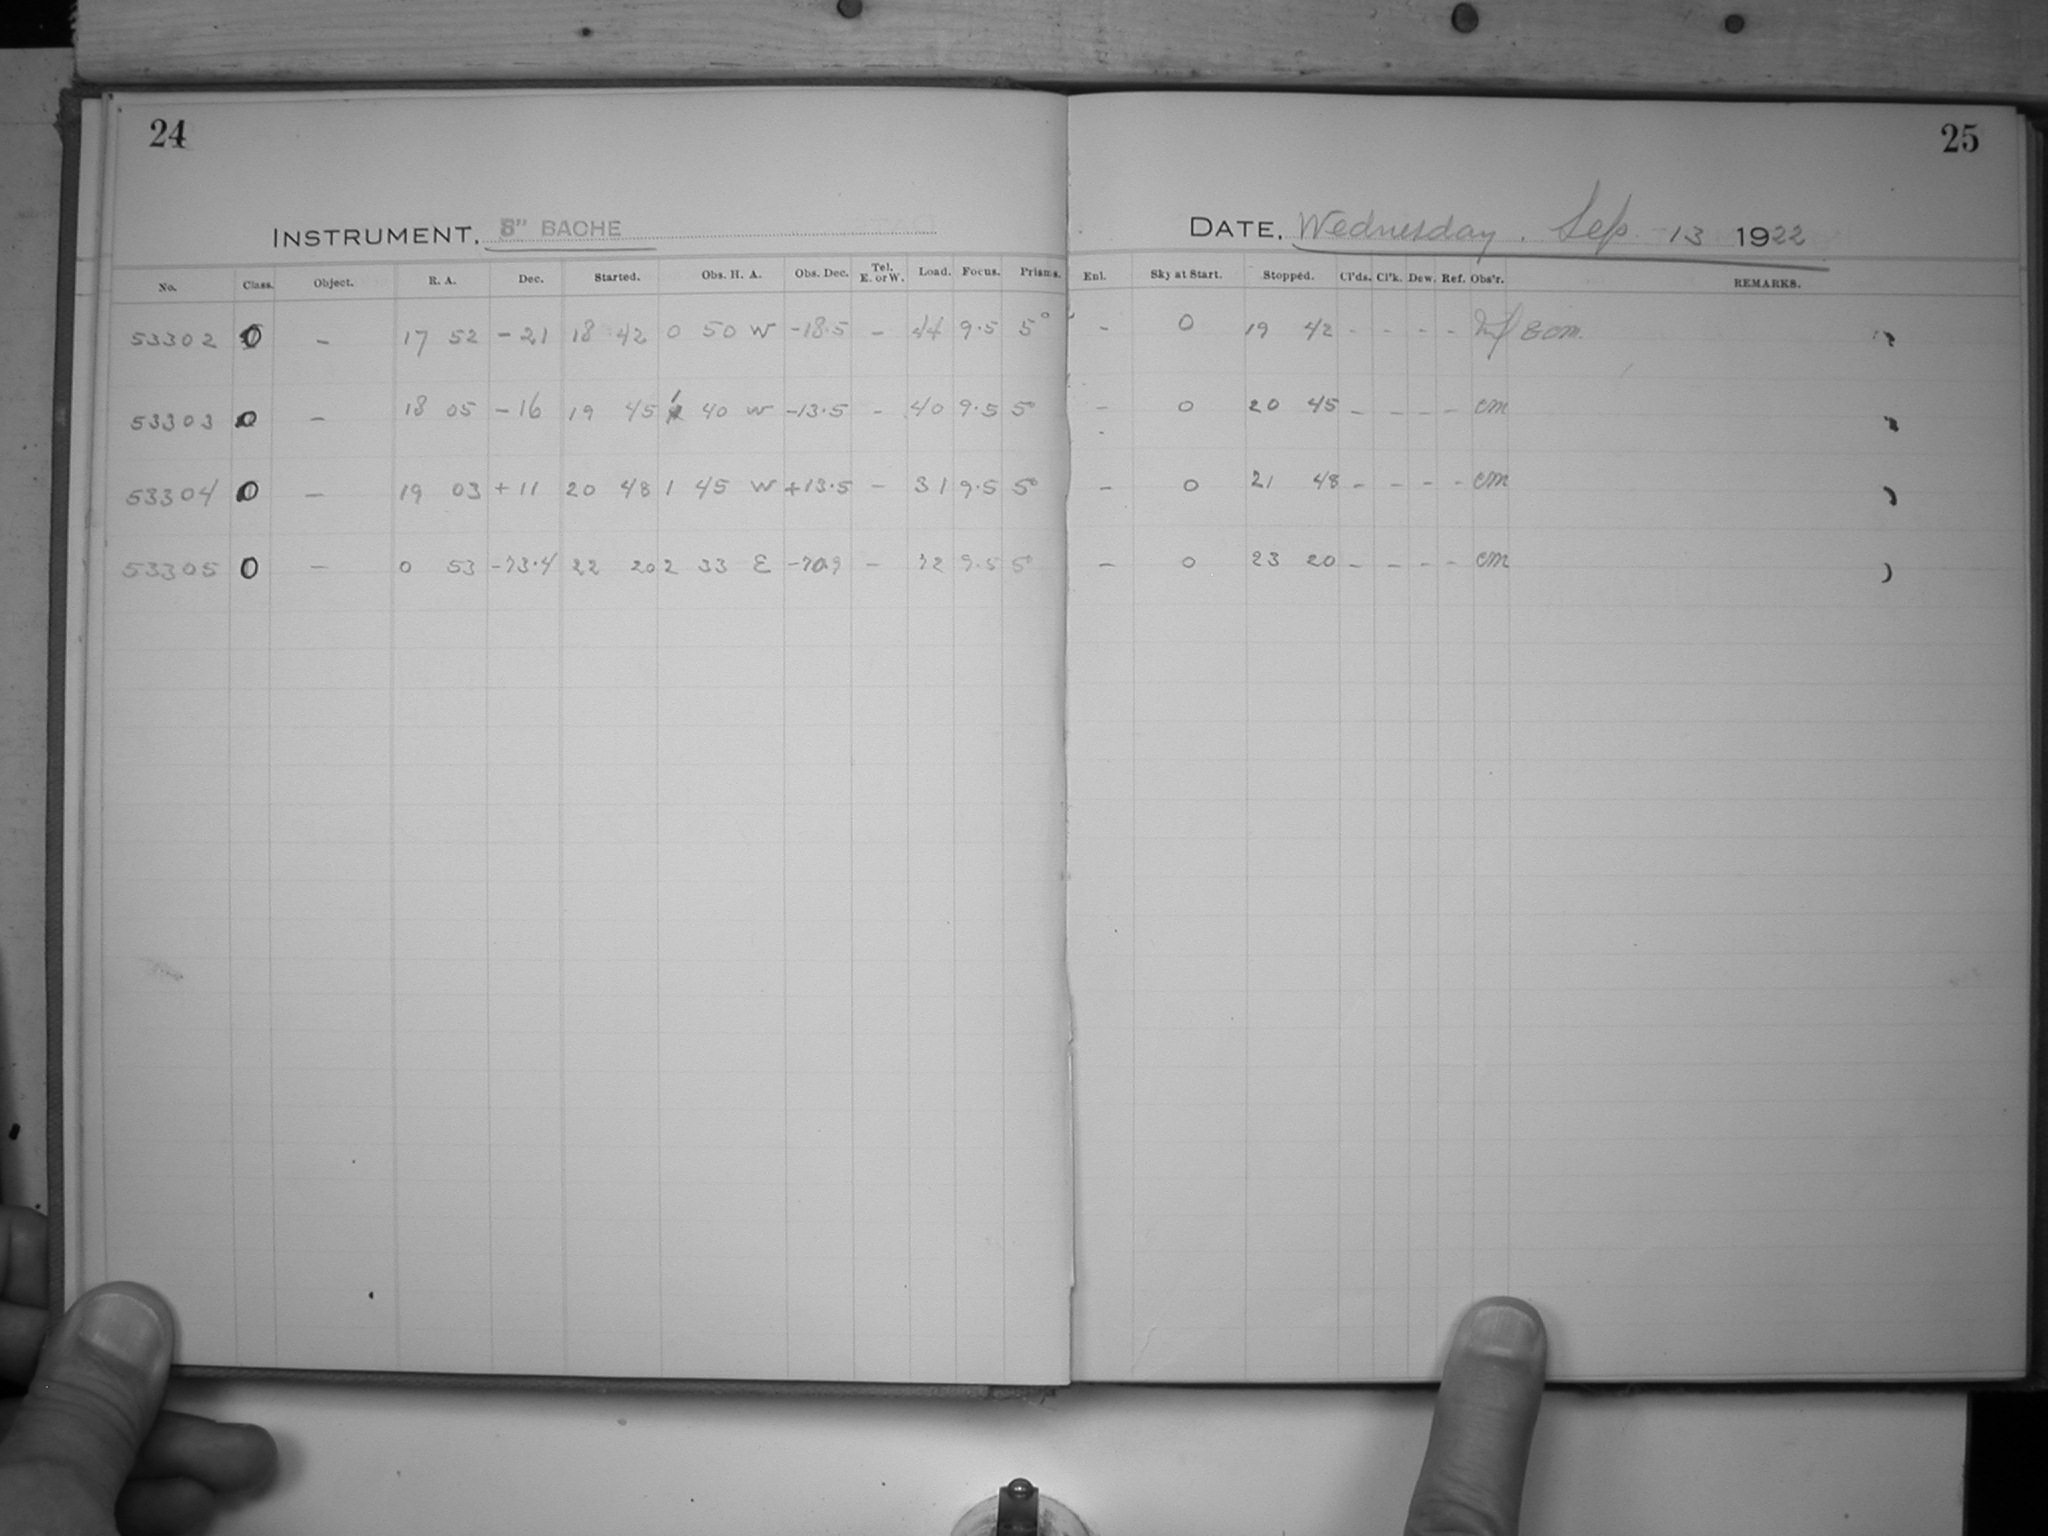 24
INSTRUMENT. 8" BACHE
No. Class. Object. R. A. Dec. Started. Obs. H. A. Obs. Dec. Tel. E. or W. Load. Focus. Prisms.
53302 0 – 17 52 – 21 18 42 0 50 W –18.5 – 44 9.5 5°
53303 0 – 18 05 – 16 19 45 1 40 W –13.5 – 40 9.5 5°
53304 0 – 19 03 + 11 20 48 1 45 W +13.5 – 31 9.5 5°
53305 0 – 0 53 –73.4 22 20 2 33 E –70.9 – 72 9.5 5°
25
DATE. Wednesday. Sep. 13 1922
Enl. Sky at Start. Stopped. Cl'ds. Cl'k. Dew. Ref. Obs'r. REMARKS.
– 0 19 42 – – – –
– 0 20 45 – – – – CM
– 0 21 48 – – – – CM
– 0 23 20 – – – – CM